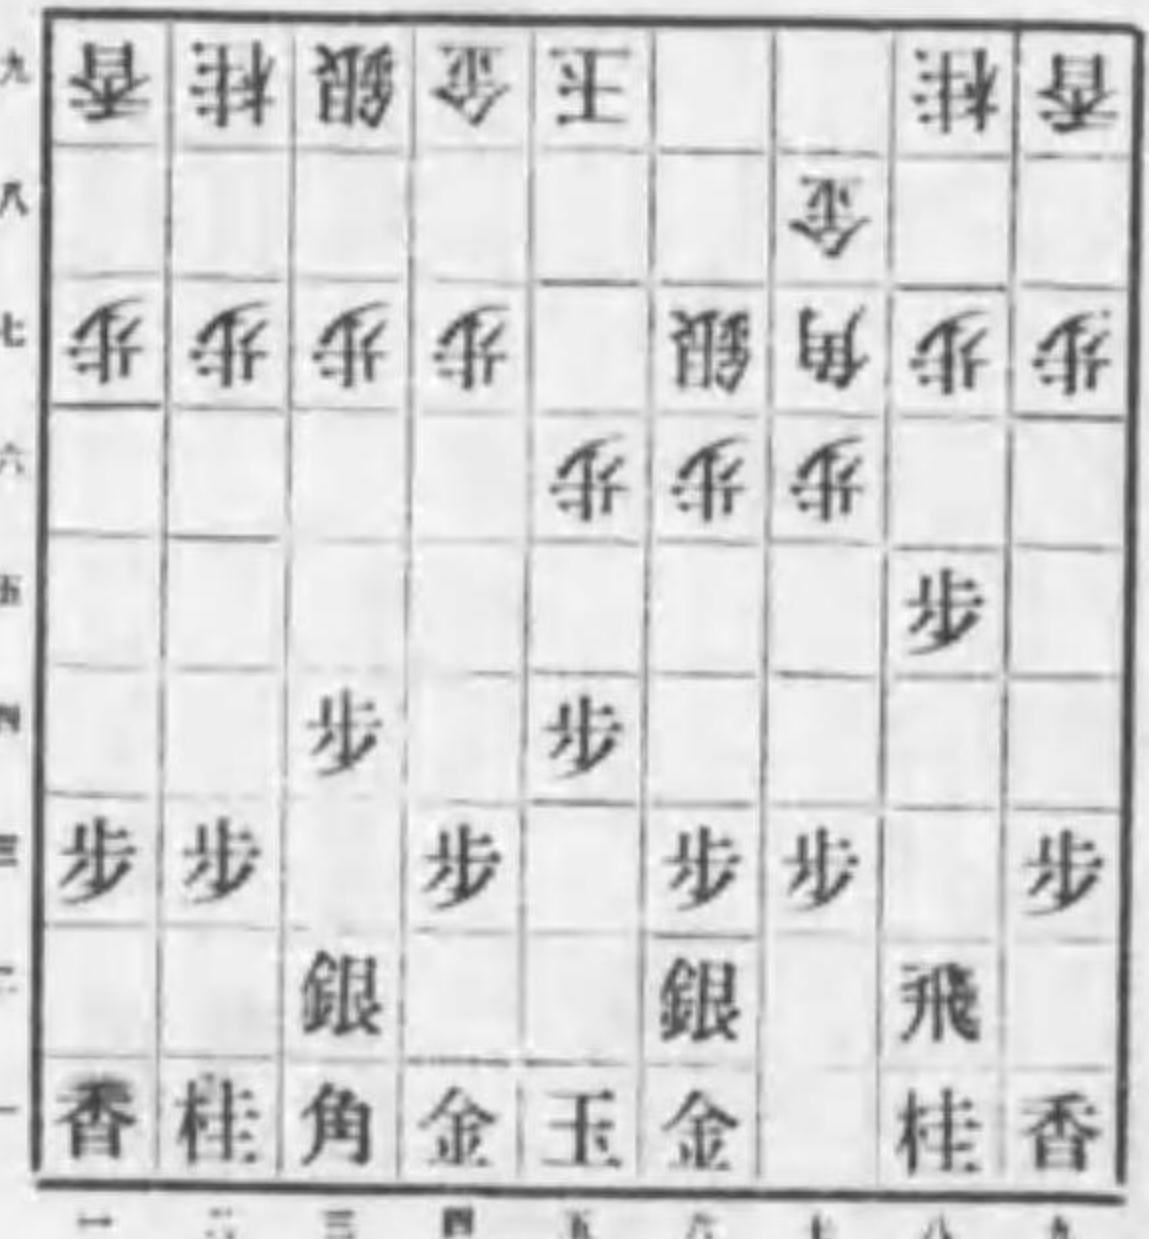 九 香 桂 銀 金 玉 桂 香
八 金
七 歩 歩 歩 歩 銀 角 歩 歩
六 歩 歩 歩
五 歩
四 歩 歩
三 歩 歩 歩 歩 歩 歩
二 銀 銀 飛
一 香 桂 角 金 玉 金 桂 香
一 二 三 四 五 六 七 八 九